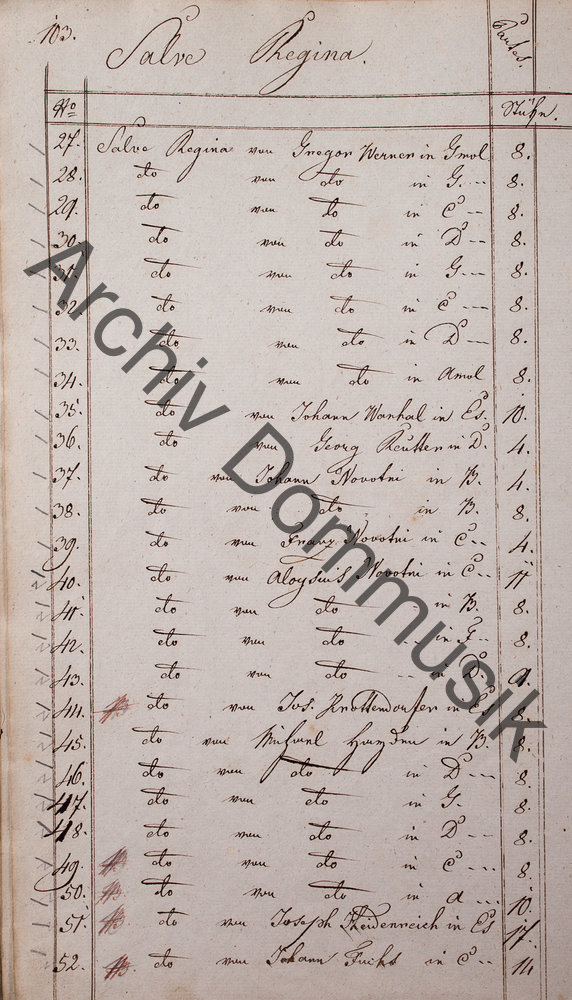 103.
Salve Regina.
Partes.
No Stükn.
27. Salve Regina von Gregor Werner in Gmol 8.
28. do von do in G. -- 8.
29. do von do in C -- 8.
30. do von do in D -- 8.
31. do von do in G -- 8.
32. do von do in C -- 8.
33. do von do in D -- 8.
34. do von do in Amol 8.
35. do von Johann Wanhal in Es. 10.
36. do von Georg Reutter in D. 4.
37. do von Johann Novotni in B. 4.
38. do von do in B. 8.
39. do von Franz Novotni in C -- 4.
40. do von Aloysius Novotni in C -- 11
41. do von do in B. 8.
42. do von do -- in G -- 8.
43. do von do -- in D. 9.
44. do von Jos. Krottendorfer in C 8.
45. do von Michael Hayden in B. 8.
46. do von do in D -- 8.
47. do von do in G. 8.
48. do von do in D -- 8.
49. do von do in C -- 8.
50. do von do in A -- 10.
51. do von Joseph Heidenreich in Es 17.
52. do von Johann Fuchs in C -- 14
Archiv Dommusik